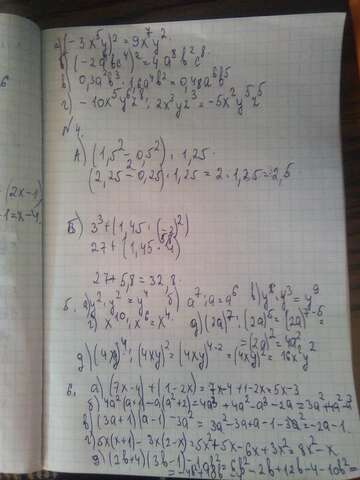 а) (-3x⁵y)² = 9x⁷y².
б) (-2a⁴bc⁴)² = 4a⁸b²c⁸
в) 0,3a²b³ · 1,6a⁴b² = 0,48a⁶b⁵
г) -10x⁵y⁶z⁸ : 2x³y z³ = -5x²y⁵z⁵
№4.
А) (1,5² - 0,5²) · 1,25
(2,25 - 0,25) · 1,25 = 2 · 1,25 = 2,5
Б) 3³ + (1,45 · (-2)²)
27 + (1,45 · 4)
27 + 5,8 = 32,8.
5. а) y² · y² = y⁴ б) a⁷ : a = a⁶ в) y⁶ · y³ = y⁹
г) x¹⁰ : x⁶ = x⁴. д) (2a)⁷ : (2a)⁵ = (2a)⁷⁻⁵ =
= (2a)² = 4a²
д) (4xy)⁴ : (4xy)² = (4xy)⁴⁻² = (4xy)² = 16x²y²
6. а) (7x-4) + (1-2x) = 7x-4+1-2x = 5x-3
б) 4a²(a+1) - a(a²+2) = 4a³+4a²-a³-2a = 3a³
в) (3a+1)(a-1) - 3a² = 3a²-3a+a-1-3a² = -2a-1.
г) 5x(x+1) - 3x(2-x) = 5x²+5x-6x+3x² = 8x²-x.
(2x-1)
-1=x-4.
6